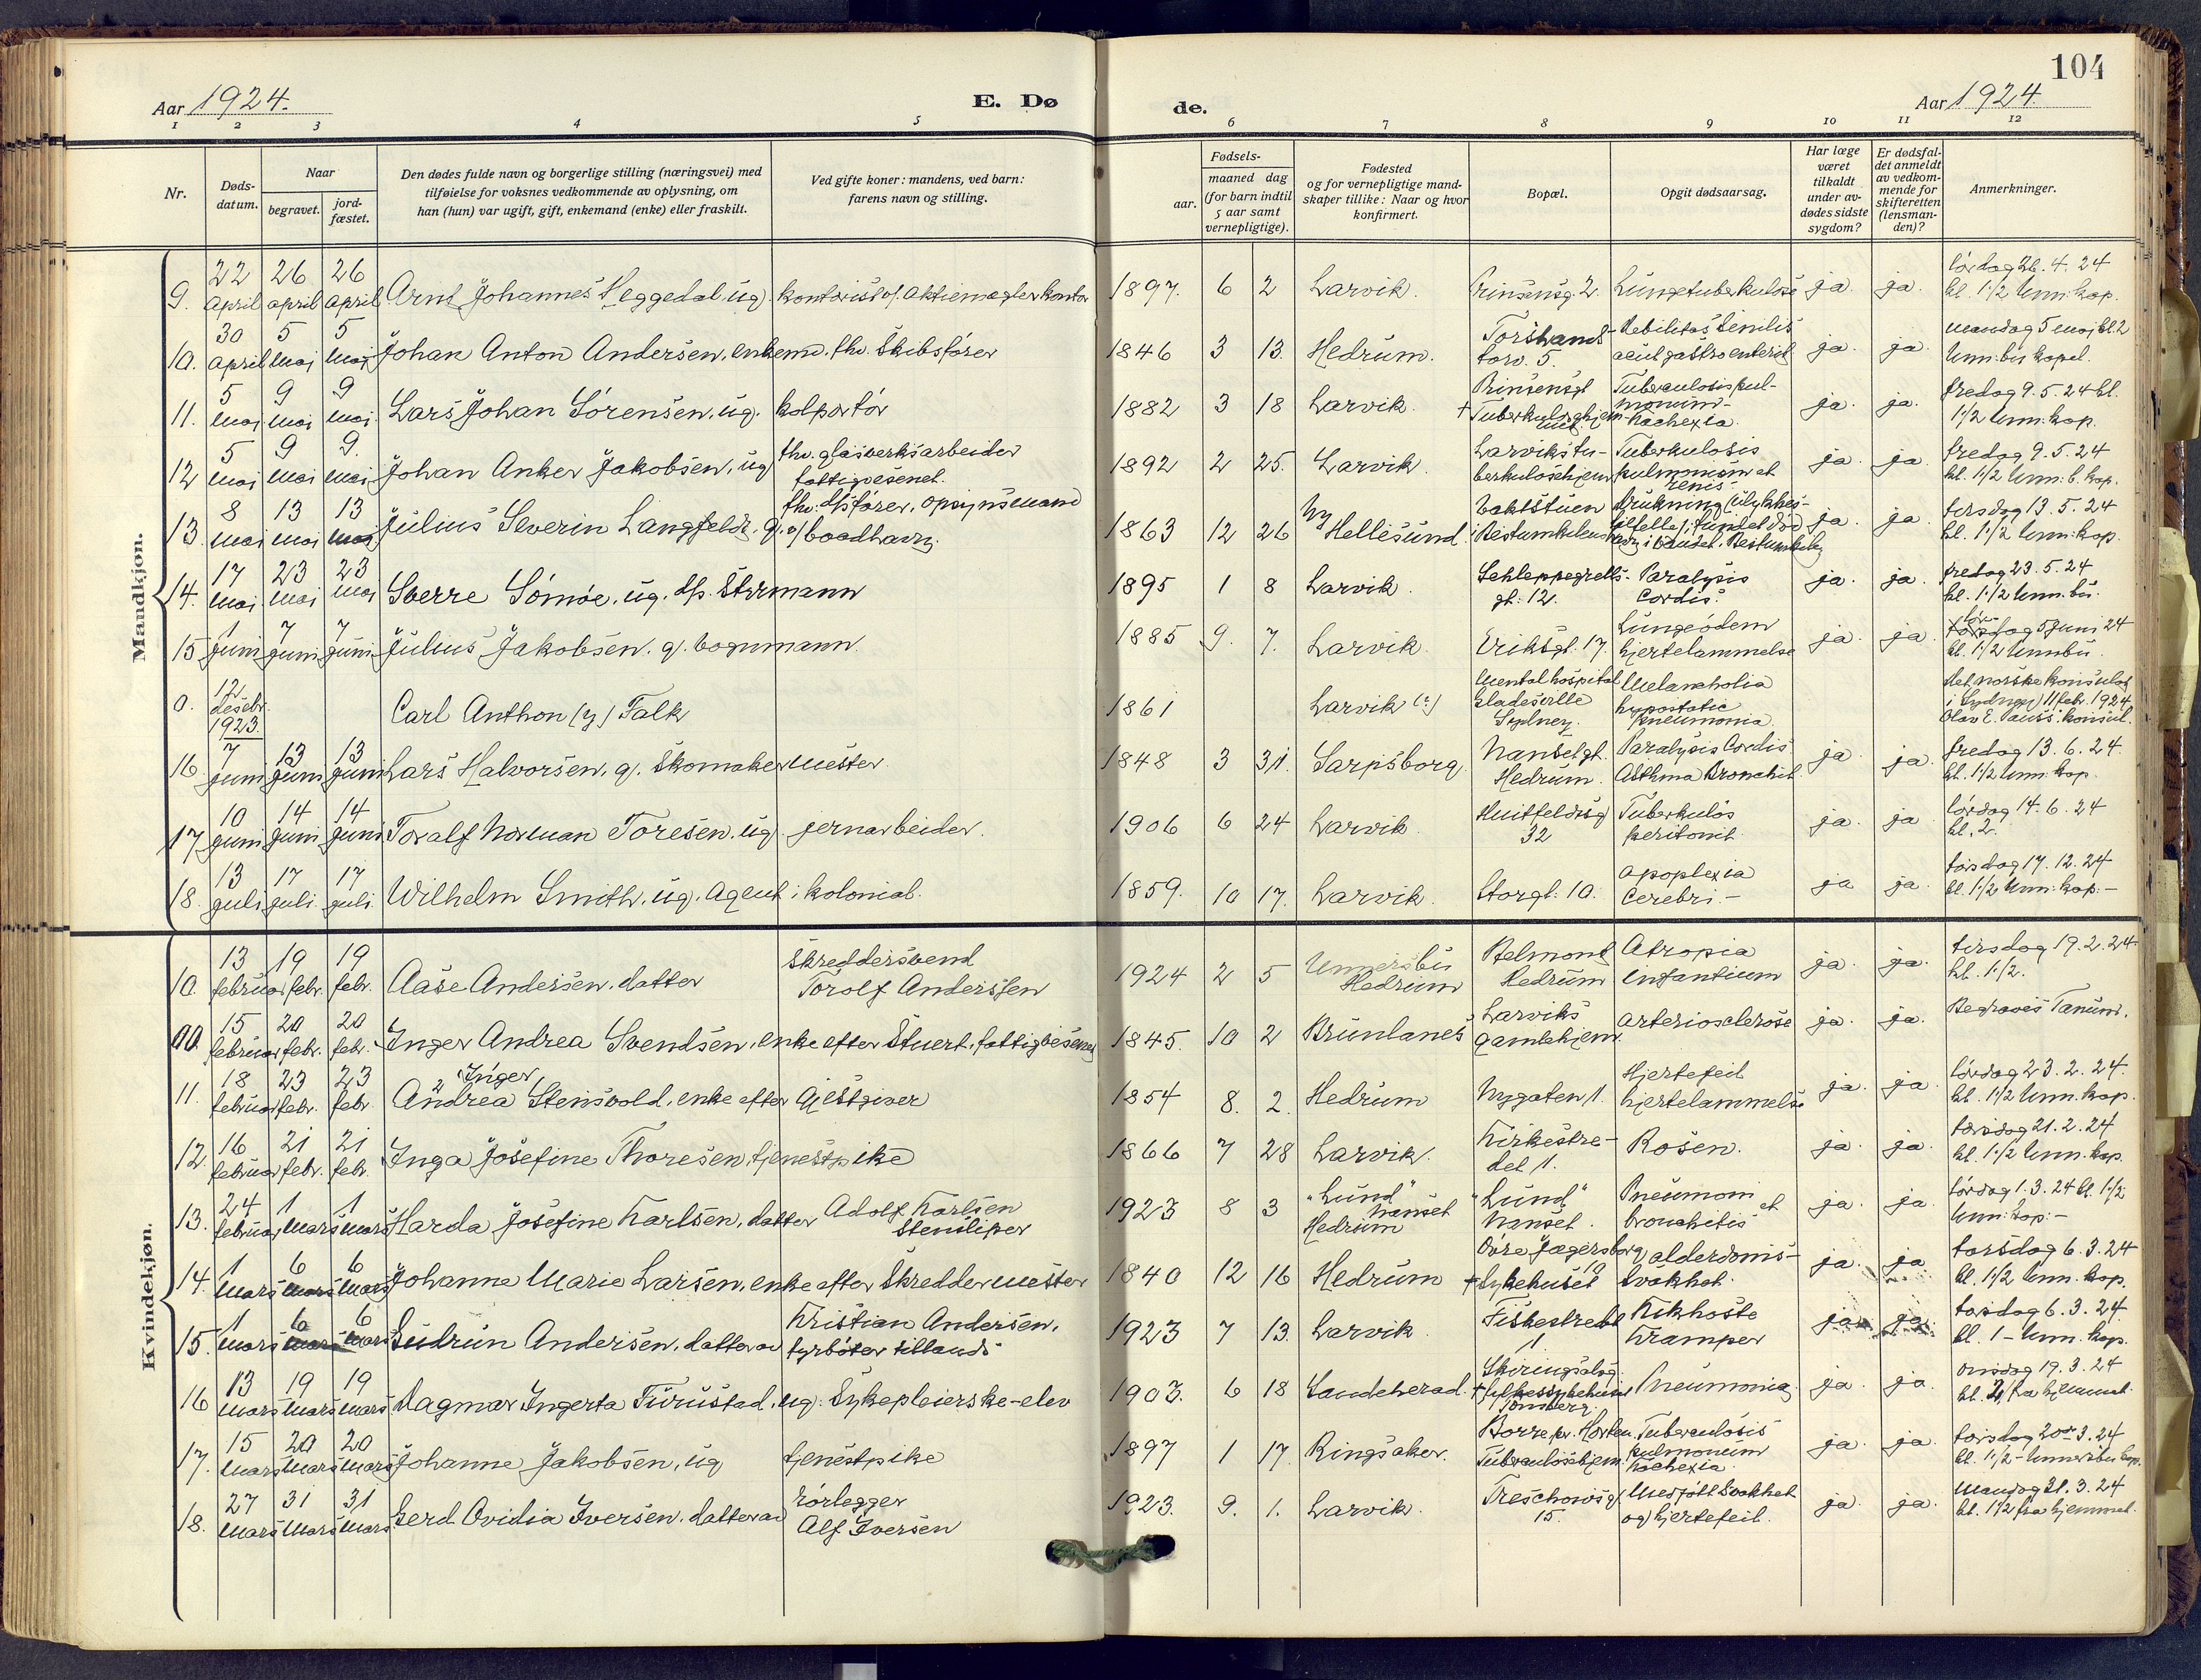 104
Aar 1924.
E. Dø
de.
Aar 1924.
1 2 3 4 5 6 7 8 9 10 11 12
Nr.
Døds-
datum.
Naar
begravet.
jord-
fæstet.
Den dødes fulde navn og borgerlige stilling (næringsvei) med
tilføielse for voksnes vedkommende av oplysning, om
han (hun) var ugift, gift, enkemand (enke) eller fraskilt.
Ved gifte koner: mandens, ved barn:
farens navn og stilling.
Fødsels-
aar.
maaned dag
(for barn indtil
5 aar samt
vernepligtige).
Fødested
og for vernepligtige mand-
skaper tillike: Naar og hvor
konfirmert.
Bopæl.
Opgit dødsaarsag.
Har læge
været
tilkaldt
under av-
dødes sidste
sygdom?
Er dødsfal-
det anmeldt
av vedkom-
mende for
skifteretten
(lensman-
den)?
Anmerkninger.
Mandkjøn.
9. 22 april 26 april 26 april Arnt Johannes Heggedal. ug. kontorist v/ aktiemæglerkontor 1897. 6 2 Larvik. Prinsensg. 2. Lungetuberkulose ja. ja. lørdag 26. 4. 24
kl. 1 1/2 Unn. kap.
10. 30 april 5 mai 5 mai Johan Anton Andersen, enkem. fhv. Skibsfører 1846 3 13. Hedrum. Torstrands-
torv. 5. Debilitas Senilis
acut gastroenterit ja. ja. mandag 5 mai kl. 2
Unn.bu kapel.
11. 5 mai 9 mai 9 mai. Lars Johan Sørensen. ug. kolportør 1882 3 18 Larvik. Prinsensgt
Tuberculosis pul-
monum-
kachexia. ja. ja. fredag 9. 5. 24 kl.
1 1/2 Unn. kap.
12 5 mai 9 mai 9. mai Johan Anker Jakobsen, ug fhv. glasverksarbeider
fattigvesenet. 1892 2 25. Larvik. Larviks tu-
berkulosehjem Tuberkulosis
pulmonum et
renis ja. ja. fredag 9. 5. 24
kl. 1 1/2 Unn. b. kap.
13. 8 mai 13 mai 13 mai Julius Severin Langfeldt. g. fhv. d/s fører, opsynsmand
v/ baadhavn. 1863 12 26 Ny
Hellesund. Vaktstuen
Drukning (ulykkes-
tilfelle) ja. ja. tirsdag 13. 5. 24
kl. 1 1/2 Unn. kap.
14. 17 mai 23 mai 23 mai Sverre Sømoe, ug. d/s. Styrmann 1895 1 8 Larvik. Schleppegrells-
gt. 12. Paralysis
Cordis. ja. ja. fredag 23. 5. 24
kl. 1 1/2 Unn. bu.
15 1 juni 7 juni 7 juni Julius Jakobsen. g. vognmann. 1885 9. 7. Larvik. Eriksgt. 17. Lungeødem
hjertelammelse ja. ja. juni 24
kl. 1 1/2 Unnbu.
0. 12 desebr. 1923. Carl Anthon (y) Falk 1861 Larvik (?) Mental hospital
Gladesville
Sydney. Melancholia
hypostatic
pneumonia. Det norske konsulat
i Sydney 11 febr. 1924
Olav E. Pauss. konsul.
16. 7 juni 13 juni 13 juni Lars Halvorsen. g. Skomakermester. 1848 3 31. Sarpsborg. Nansetgt.
Hedrum. Paralysis Cordis.
Asthma Bronchit. ja. ja. fredag 13. 6. 24.
kl. 1 1/2 Unn. kap.
17 10 juni 14 juni 14 juni Toralf Norman Toresen. ug. jernarbeider. 1906 6 24 Larvik. Huitfeldtsg
32 Tuberkuløs
peritonit. ja. ja. lørdag 14. 6. 24
kl. 2.
18. 13 juli 17 juli. 17 juli. Wilhelm Smith. ug. Agent i kolonial. 1859. 10 17. Larvik. Storgt. 10. apoplexia
Cerebri. - ja ja. torsdag 17. 12. 24
kl. 1 1/2 Unn. kap. -
Kvindekjøn.
10. 13 februar 19 febr. 19 febr. Aase Andersen. datter Skreddersvend
Torolf Anderssen 1924 2 5 Unnersbu
Hedrum Belmont
Hedrum Atropia
Infantium ja. ja. tirsdag 19. 2. 24
kl. 1 1/2.
00. 15 februar 20 febr. 20 febr. Inger Andrea Svendsen, enke efter Stuert. fattigvesenet 1845. 10 2 Brunlanes Larviks
gamlehjem. arteriosclerose ja. ja. Begraves Tanum.
11. 18 februar 23 febr. 23 febr. Inger
Andrea Stensvold, enke efter Gjestgiver 1854 8. 2. Hedrum Nygaten 1. Hjertefeil
hjertelammelse ja. ja. lørdag 23. 2. 24.
kl. 1 1/2 Unn. kap.
12. 16 februar 21 febr. 21 febr. Inga Josefine Thoresen. tjenestpike 1866 7 28 Larvik. Kirkestre-
det 1. Rosen. ja. ja. torsdag 21. 2. 24
kl. 1 1/2 Unn. kap.
13. 24 februar 1 mars 1 mars Harda Josefine Karlsen, datter Adolf Karlsen
Stensliper 1923 8 3 "Lund"
Nanset
Hedrum "Lund"
Nanset. Pneumoni et
bronchitis ja. ja. lørdag 1. 3. 24 kl. 1 1/2
Unn. kap. -
14. 1 mars 6 mars 6 mars Johanne Marie Larsen, enke efter Skreddermester 1840 12 16 Hedrum Øvre Jægersborg 10
+ Sykehuset alderdoms-
svakhet. ja. ja torsdag 6. 3. 24
kl. 1 1/2 Unn. kap.
15. 1 mars 6 mars 6 mars Gudrun Andersen, datter av Kristian Andersen.
fyrbøter tillands 1923 7 13. Larvik. Fiskestredet
11 Kikhoste
Kramper ja ja. torsdag 6. 3. 24
kl. 1 - Unn. kap.
16 13 mars 19 mars 19 mars Dagmar Ingerta Furustad. ug. Sykepleierske-elev 1903. 6 18 Sandeherad. Skiringsalsg.
+ fylkessykehuset
Tønsberg. Pneumonia ja. ja. onsdag 19. 3. 24
kl. 2, fra hjemmet.
17. 15 mars 20 mars 20 mars Johanne Jakobsen, ug tjenestpike 1897 1 17. Ringsaker. Borre pr. Horten.
Tuberculosehjem. Tuberculosis
pulmonum
kachexia. ja. ja. torsdag 20. 3. 24
kl. 1 1/2 - Unnersbu kap.
18. 27 mars 31 mars 31 mars. Gerd Ovidia Iversen. datter av rørlegger
Alf Iversen 1923. 9. 1. Larvik. Treschowsg.
15. Medfødt svakhet
og hjertefeil. ja. ja. mandag 31. 3. 24
kl. 1 1/2 fra hjemmet.